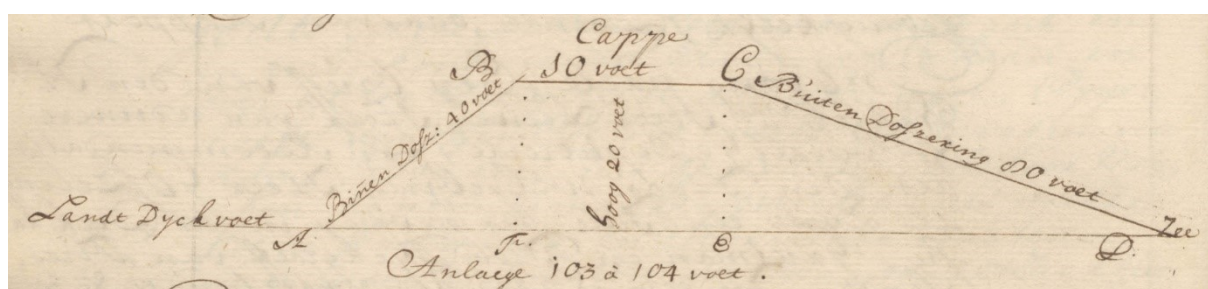 Cappe
B 10 voet C
Binen Dosz: 40 voet
hoog 20 voet
Buiten Doszering 80 voet
Landt Dyck voet
A F. E D. Zee
Anlaege 103 à 104 voet.